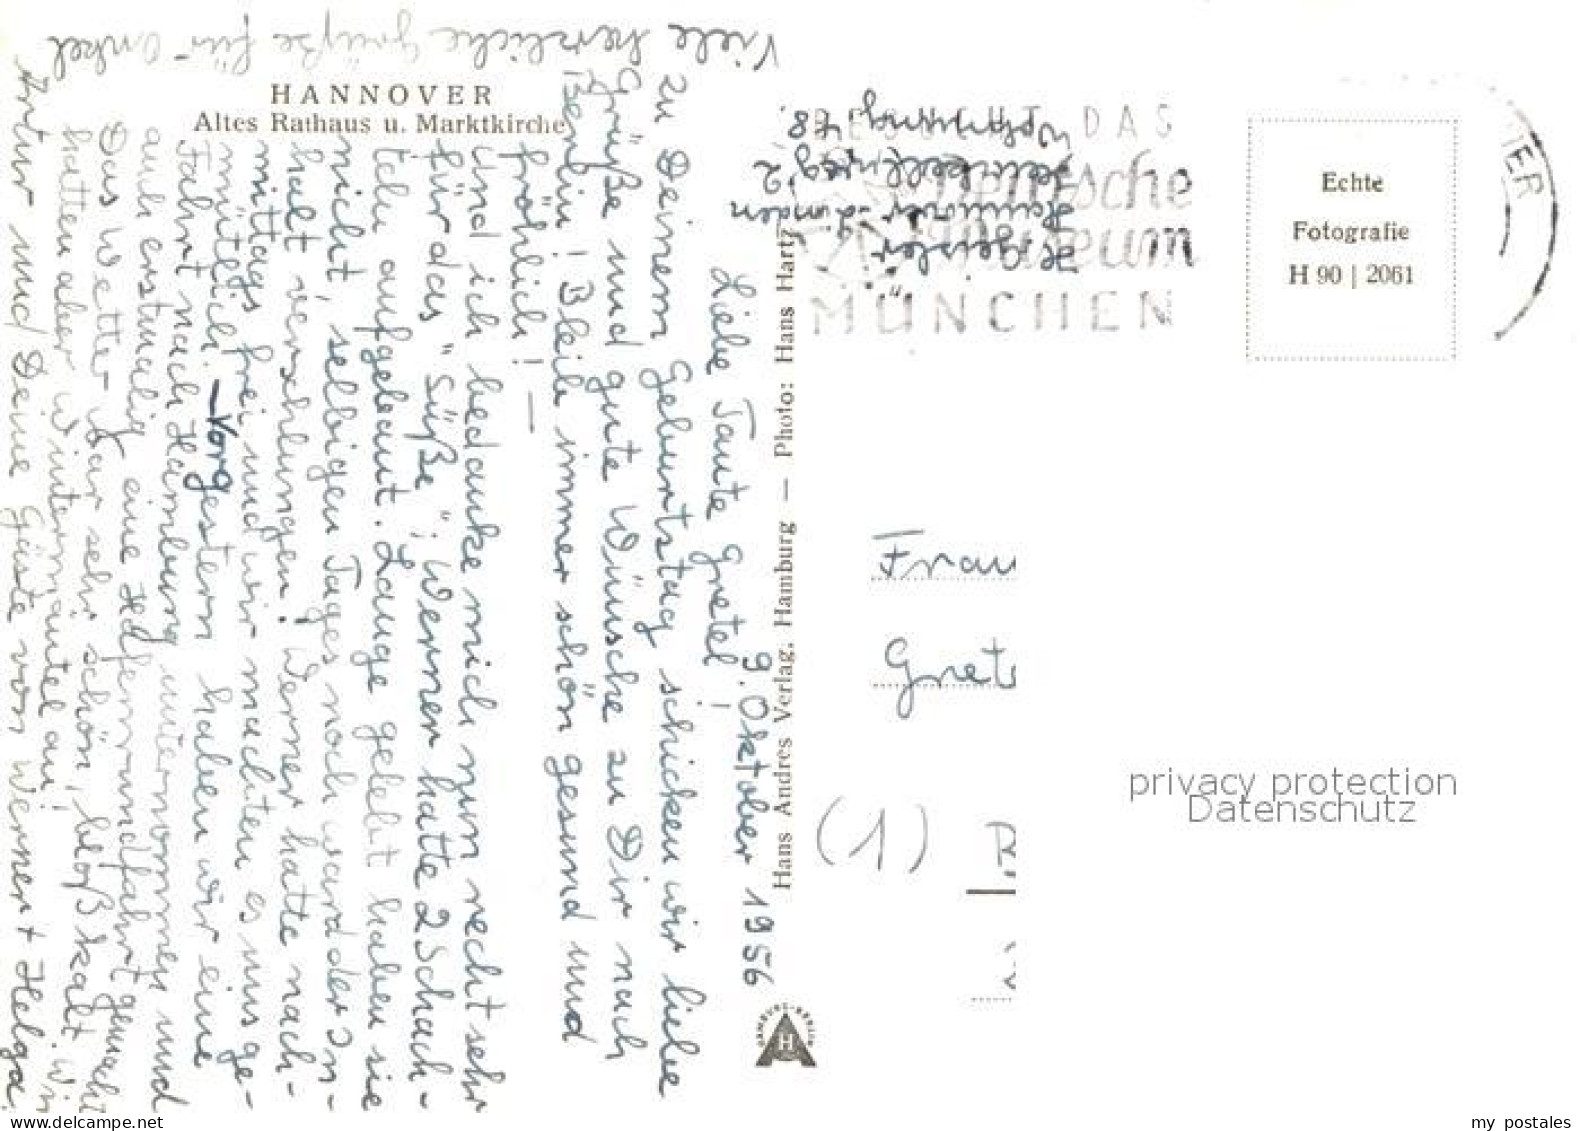 HANNOVER
Altes Rathaus u. Marktkirche
9. Oktober 1956
Liebe Tante Gretel!
zu Deinem Geburtstag schicken wir liebe
Grüße und gute Wünsche zu Dir nach
Berlin! Bleib immer schön gesund und
fröhlich! —
Und ich bedanke mich nun recht sehr
für das "Süße"; Werner hatte 2 Schach-
teln aufgebaut. Lange gelebt haben sie
nicht, selbigen Tages noch ward der In-
halt verschlungen! Werner hatte nach-
mittags frei und wir machten es uns ge-
mütlich. — Vorgestern haben wir eine
Fahrt nach Hamburg unternommen und
auch erstmalig eine Hafenrundfahrt gemacht
Das Wetter war sehr schön, bloß kalt. Wir
hatten aber Wintermäntel an!
Viele herzliche Grüße für Onkel
Artur und Deine Gäste von Werner + Helga.
Hans Andres Verlag, Hamburg — Photo: Hans Hartz
HAMBURG-BERLIN
H
H. Geisler
Hannover-Linden
2
Wohnung 48.
DAS
Deutsche
Museum
MÜNCHEN
Echte
Fotografie
H 90 | 2061
Frau
Grete
(1)
privacy protection
Datenschutz
www.delcampe.net
my postales